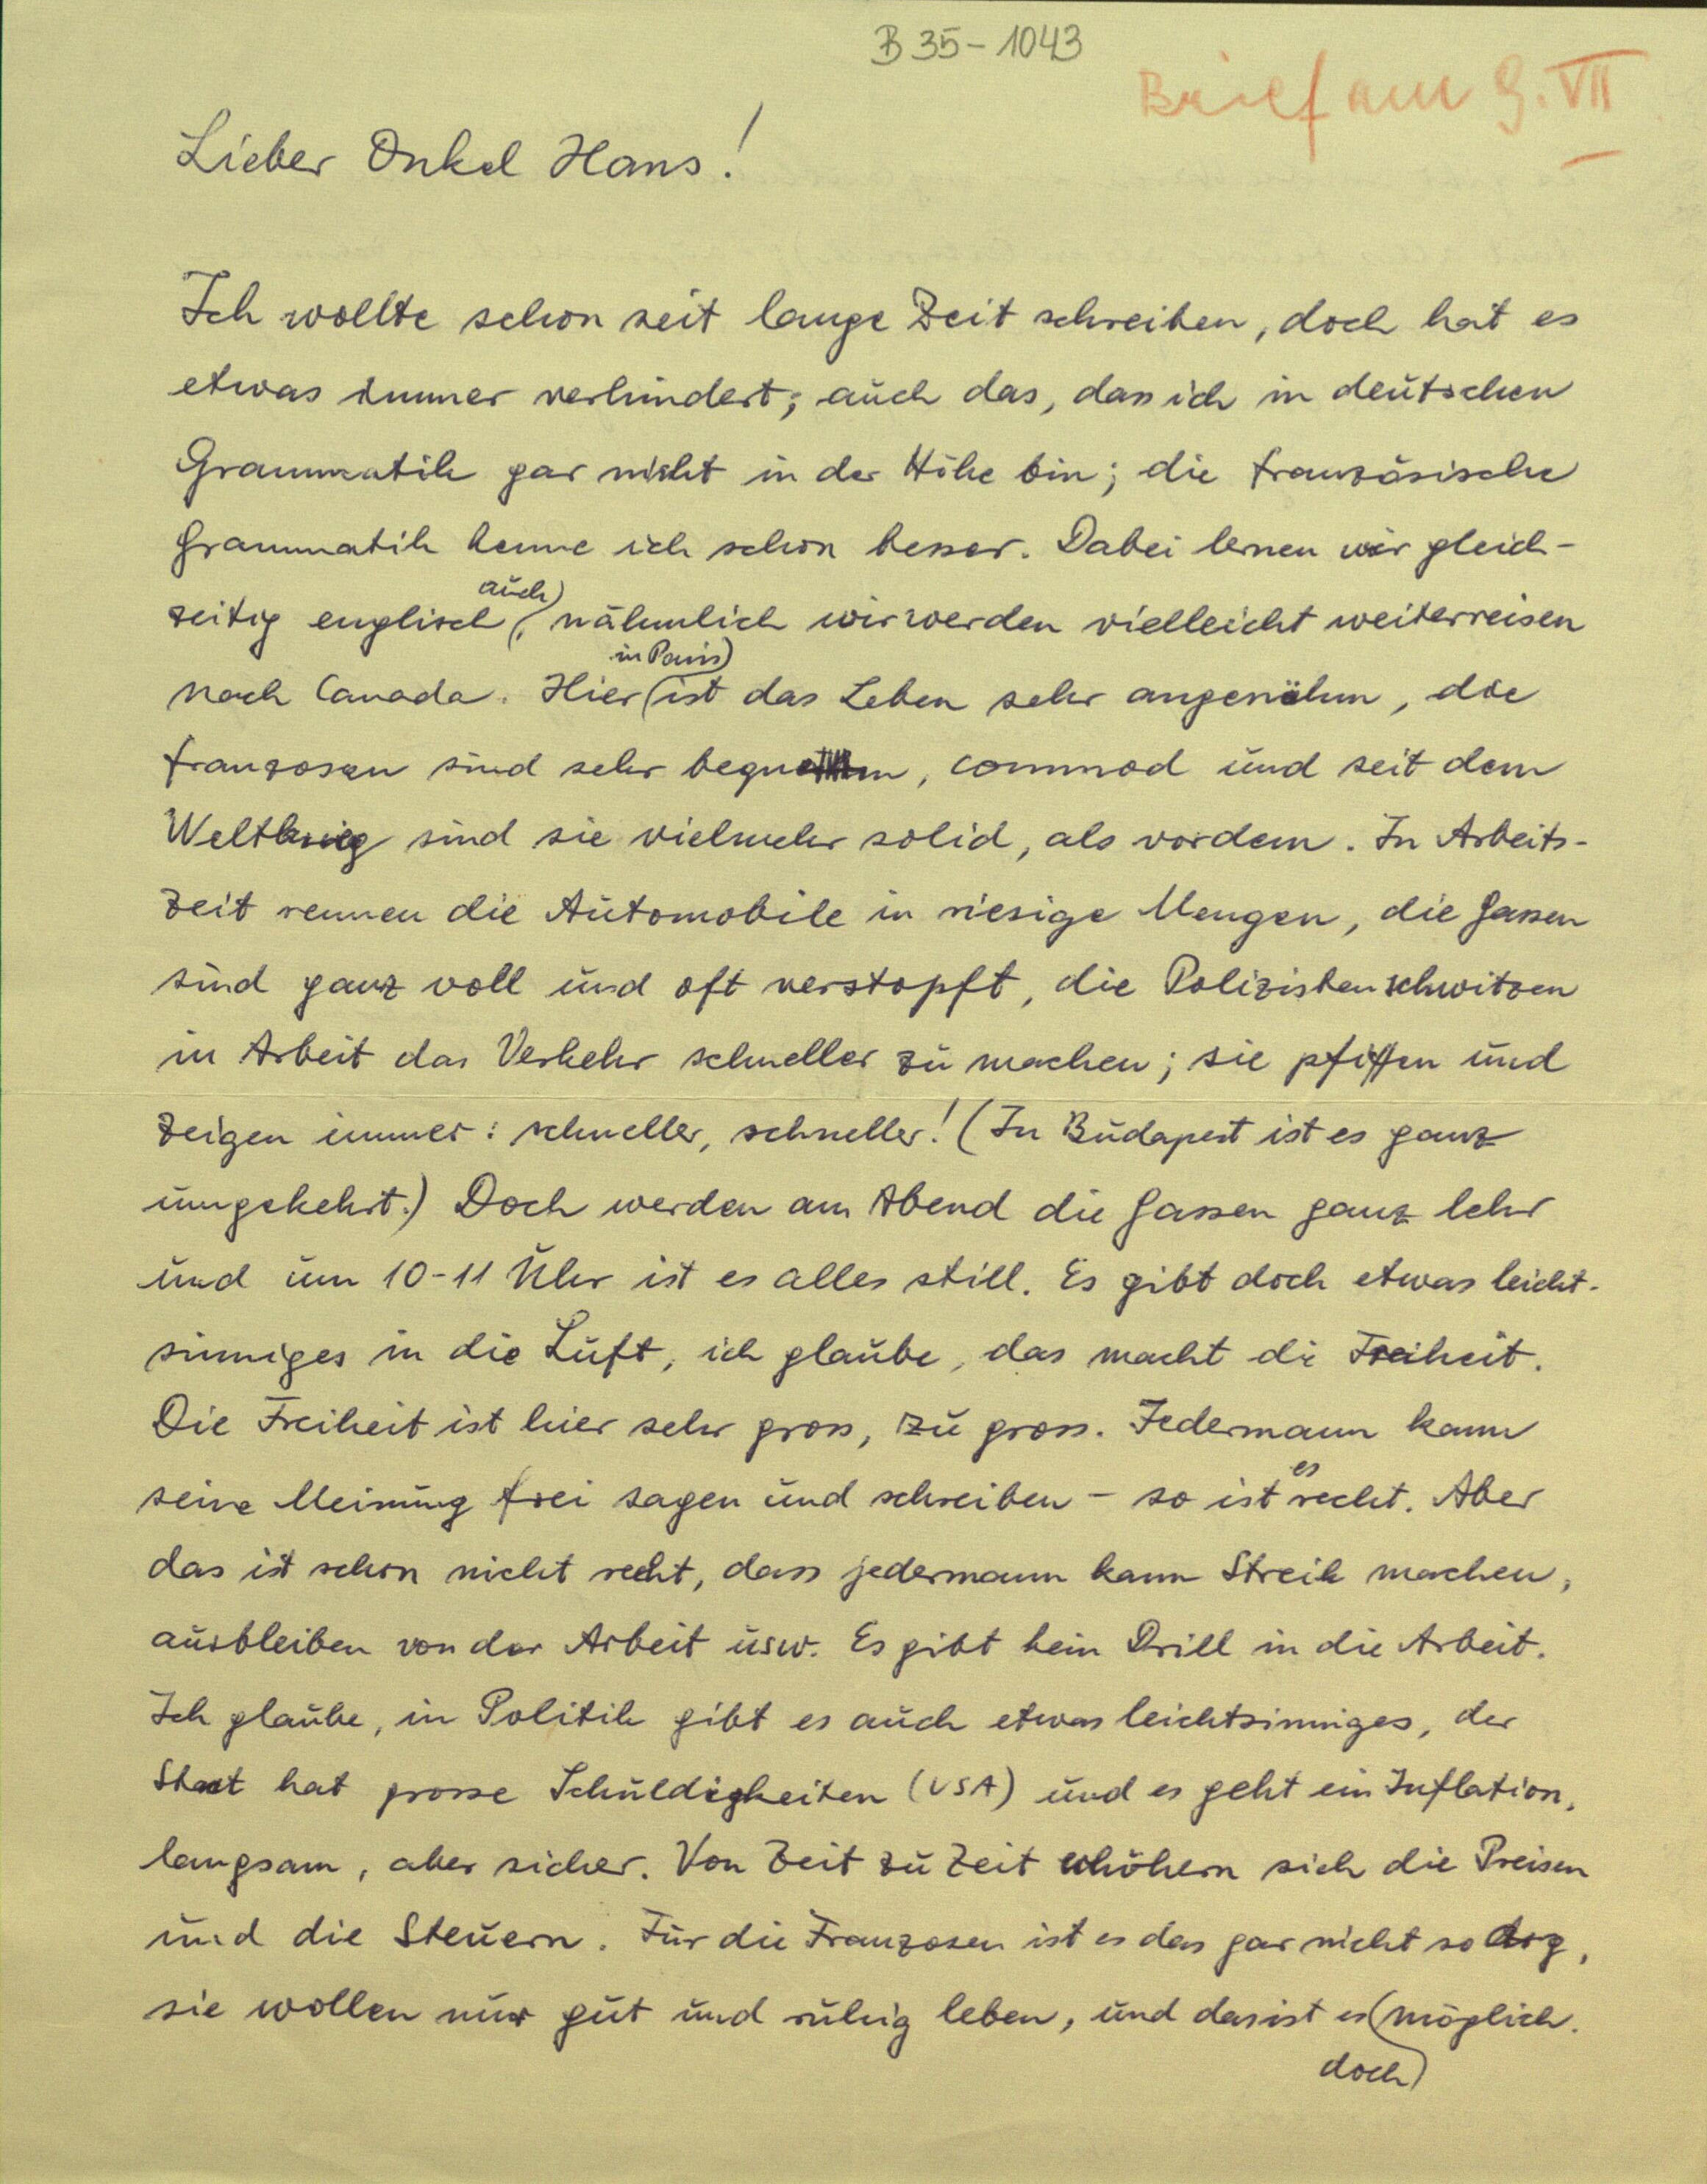 B 35-1043
Brief am 9. VII
Lieber Onkel Hans!
Ich wollte schon seit lange Zeit schreiben, doch hat es
etwas immer verhindert; auch das, dass ich in deutschen
Grammatik gar nicht in der Höhe bin; die französische
Grammatik kenne ich schon besser. Dabei lernen wir gleich-
zeitig englisch auch, nähmlich wir werden vielleicht weiterreisen
nach Canada. Hier in Paris ist das Leben sehr angenähm, die
franzosen sind sehr bequem, commod und seit dem
Weltkrieg sind sie vielmehr solid, als vordem. In Arbeits-
zeit rennen die Automobile in riesige Mengen, die Gassen
sind ganz voll und oft verstopft, die Polizisten schwitzen
in Arbeit das Verkehr schneller zu machen; sie pfiffen und
zeigen immer: schneller, schneller! (In Budapest ist es ganz
umgekehrt.) Doch werden am Abend die Gassen ganz lehr
und um 10-11 Uhr ist es alles still. Es gibt doch etwas leicht-
sinniges in die Luft, ich glaube, das macht di Freiheit.
Die Freiheit ist hier sehr gross, zu gross. Jedermann kann
seine Meinung frei sagen und schreiben - so ist es recht. Aber
das ist schon nicht recht, dass jedermann kann Streik machen,
ausbleiben von der Arbeit usw. Es gibt kein Drill in die Arbeit.
Ich glaube, in Politik gibt es auch etwas leichtsinniges, der
Staat hat grosse Schuldigkeiten (USA) und es geht ein Inflation,
langsam, aber sicher. Von Zeit zu Zeit erhöhern sich die Preisen
und die Steuern. Für die Franzosen ist es das gar nicht so arg,
sie wollen nur gut und ruhig leben, und das ist es doch möglich.